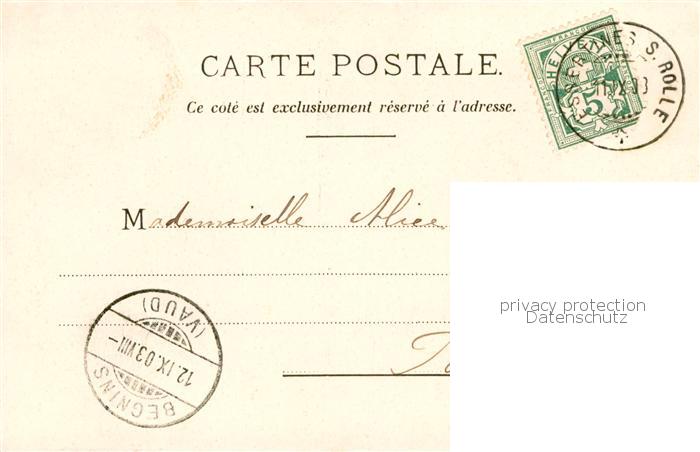 CARTE POSTALE.
Ce coté est exclusivement réservé à l'adresse.
FRANCO
HELVETIA
5
S. ROLLE
Mademoiselle Alice
privacy protection
Datenschutz
BEGNINS
12.IX.03.VIII-
(VAUD)